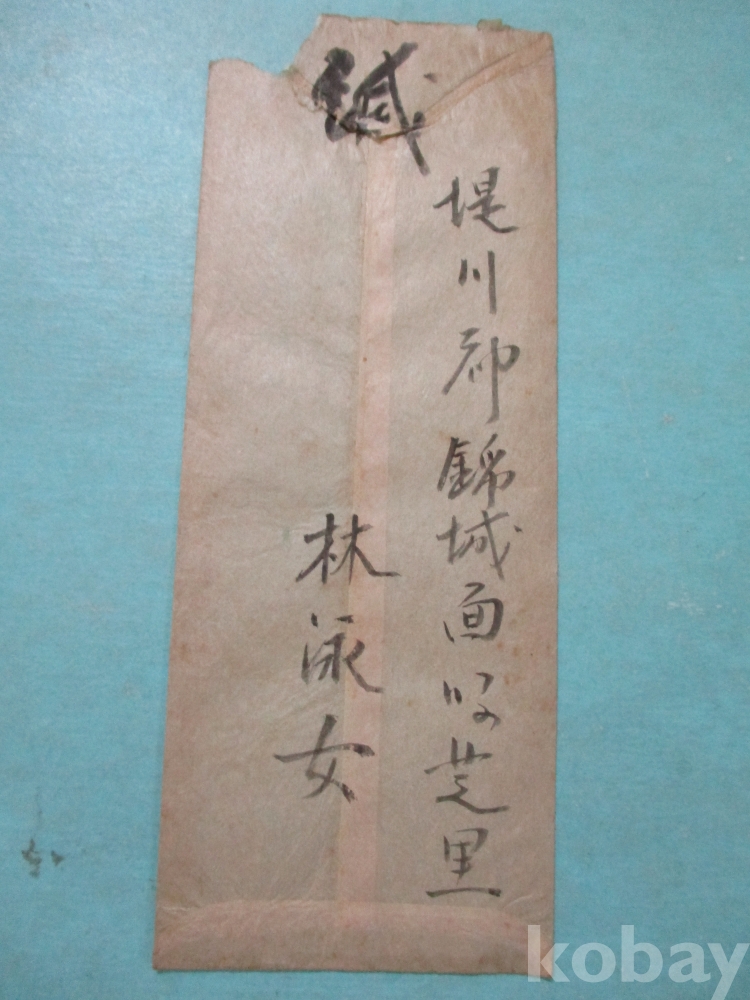 緘
堤川郡錦城面芝里
林泳女
kobay